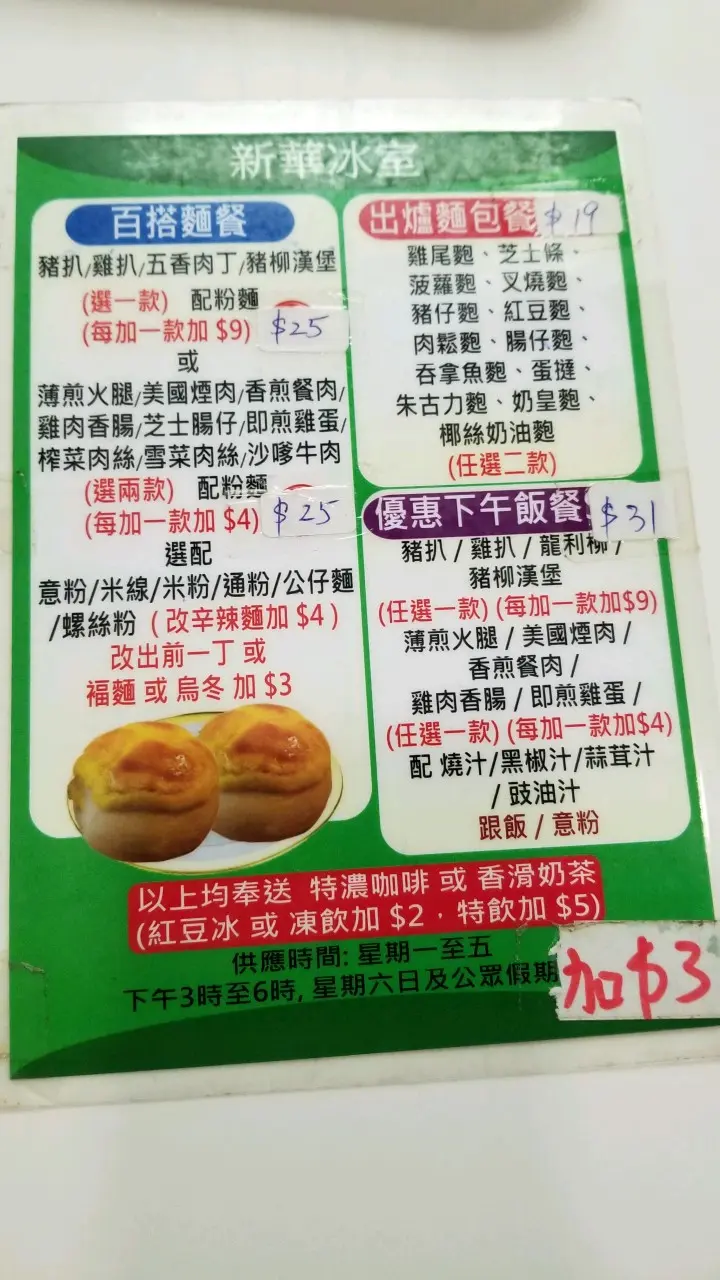 新華冰室
百搭麵餐
豬扒/雞扒/五香肉丁/豬柳漢堡
(選一款) 配粉麵
(每加一款加 $9) $25
或
薄煎火腿/美國煙肉/香煎餐肉/
雞肉香腸/芝士腸仔/即煎雞蛋/
榨菜肉絲/雪菜肉絲/沙嗲牛肉
(選兩款) 配粉麵
(每加一款加 $4) $25
選配
意粉/米線/米粉/通粉/公仔麵
/螺絲粉 (改辛辣麵加 $4)
改出前一丁 或
福麵 或 烏冬 加 $3
出爐麵包餐 $19
雞尾麭、芝士條、
菠蘿麭、叉燒麭、
豬仔麭、紅豆麭、
肉鬆麭、腸仔麭、
吞拿魚麭、蛋撻、
朱古力麭、奶皇麭、
椰絲奶油麭
(任選二款)
優惠下午飯餐 $31
豬扒 / 雞扒 / 龍利柳 /
豬柳漢堡
(任選一款) (每加一款加$9)
薄煎火腿 / 美國煙肉 /
香煎餐肉 /
雞肉香腸 / 即煎雞蛋 /
(任選一款) (每加一款加$4)
配 燒汁/黑椒汁/蒜茸汁
/ 豉油汁
跟飯 / 意粉
以上均奉送 特濃咖啡 或 香滑奶茶
(紅豆冰 或 凍飲加 $2，特飲加 $5)
供應時間: 星期一至五
下午3時至6時, 星期六日及公眾假期 加$3